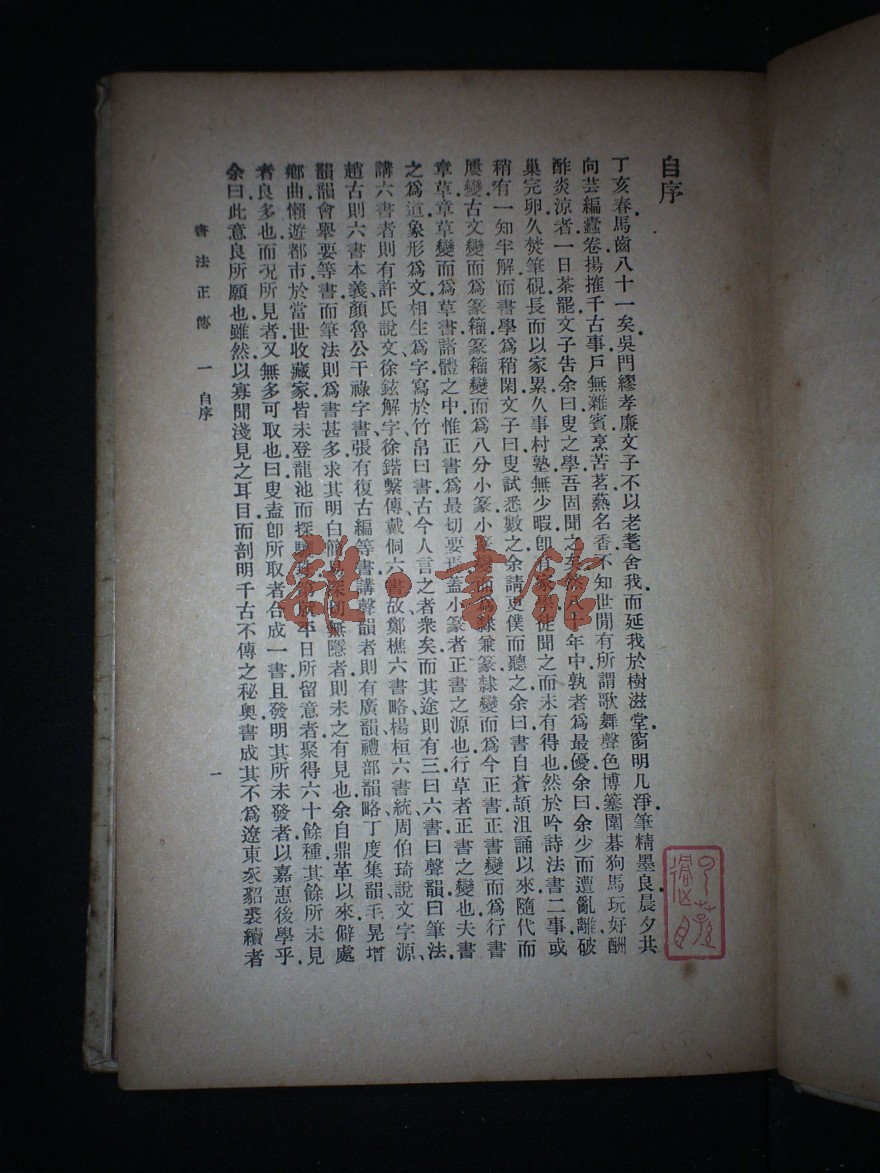 自序
丁亥春馬齒八十一矣吳門繆孝廉文子不以老耄舍我而延我於樹滋堂窗明几淨筆精墨良晨夕共
向芸編蠹卷揚搉千古事戶無雜賓烹苦茗爇名香不知世閒有所謂歌舞聲色博簺圍碁狗馬玩好酬
酢炎涼者一日茶罷文子告余曰叟之學吾固聞之矣八十年中孰者為最優余曰余少而遭亂離破
巢完卵久焚筆硯長而以家累久事村塾無少暇卽有家學徒聞之而未有得也然於吟詩法書二事或
稍有一知半解而書學為稍閑文子曰叟試悉數之余請更僕而聽之余曰書自蒼頡沮誦以來隨代而
屢變古文變而為篆籀篆籀變而為八分小篆小篆變而為隸兼篆隸變而為今正書正書變而為行書
章草章草變而為草書諸體之中惟正書為最切要焉蓋小篆者正書之源也行草者正書之變也夫書
之為道象形為文相生為字寫於竹帛曰書古今人言之者衆矣而其途則有三曰六書曰聲韻曰筆法
講六書者則有許氏說文徐鉉解字徐鍇繫傳戴侗六書故鄭樵六書略楊桓六書統周伯琦說文字源
趙古則六書本義顏魯公干祿字書張有復古編等書講聲韻者則有廣韻禮部韻略丁度集韻毛晃增
韻韻會舉要等書而筆法則為書甚多求其明白簡易深切無隱者則未之有見也余自鼎革以來僻處
鄉曲懶遊都市於當世收藏家皆未登龍池而探驪珠第就平日所留意者聚得六十餘種其餘所未見
者良多也而況所見者又無多可取也曰叟盍卽所取者合成一書且發明其所未發者以嘉惠後學乎
余曰此意良所願也雖然以寡聞淺見之耳目而剖明千古不傳之秘奧書成其不為遼東豕貂裘續者
書法正傳 一 自序
一
雜·書館